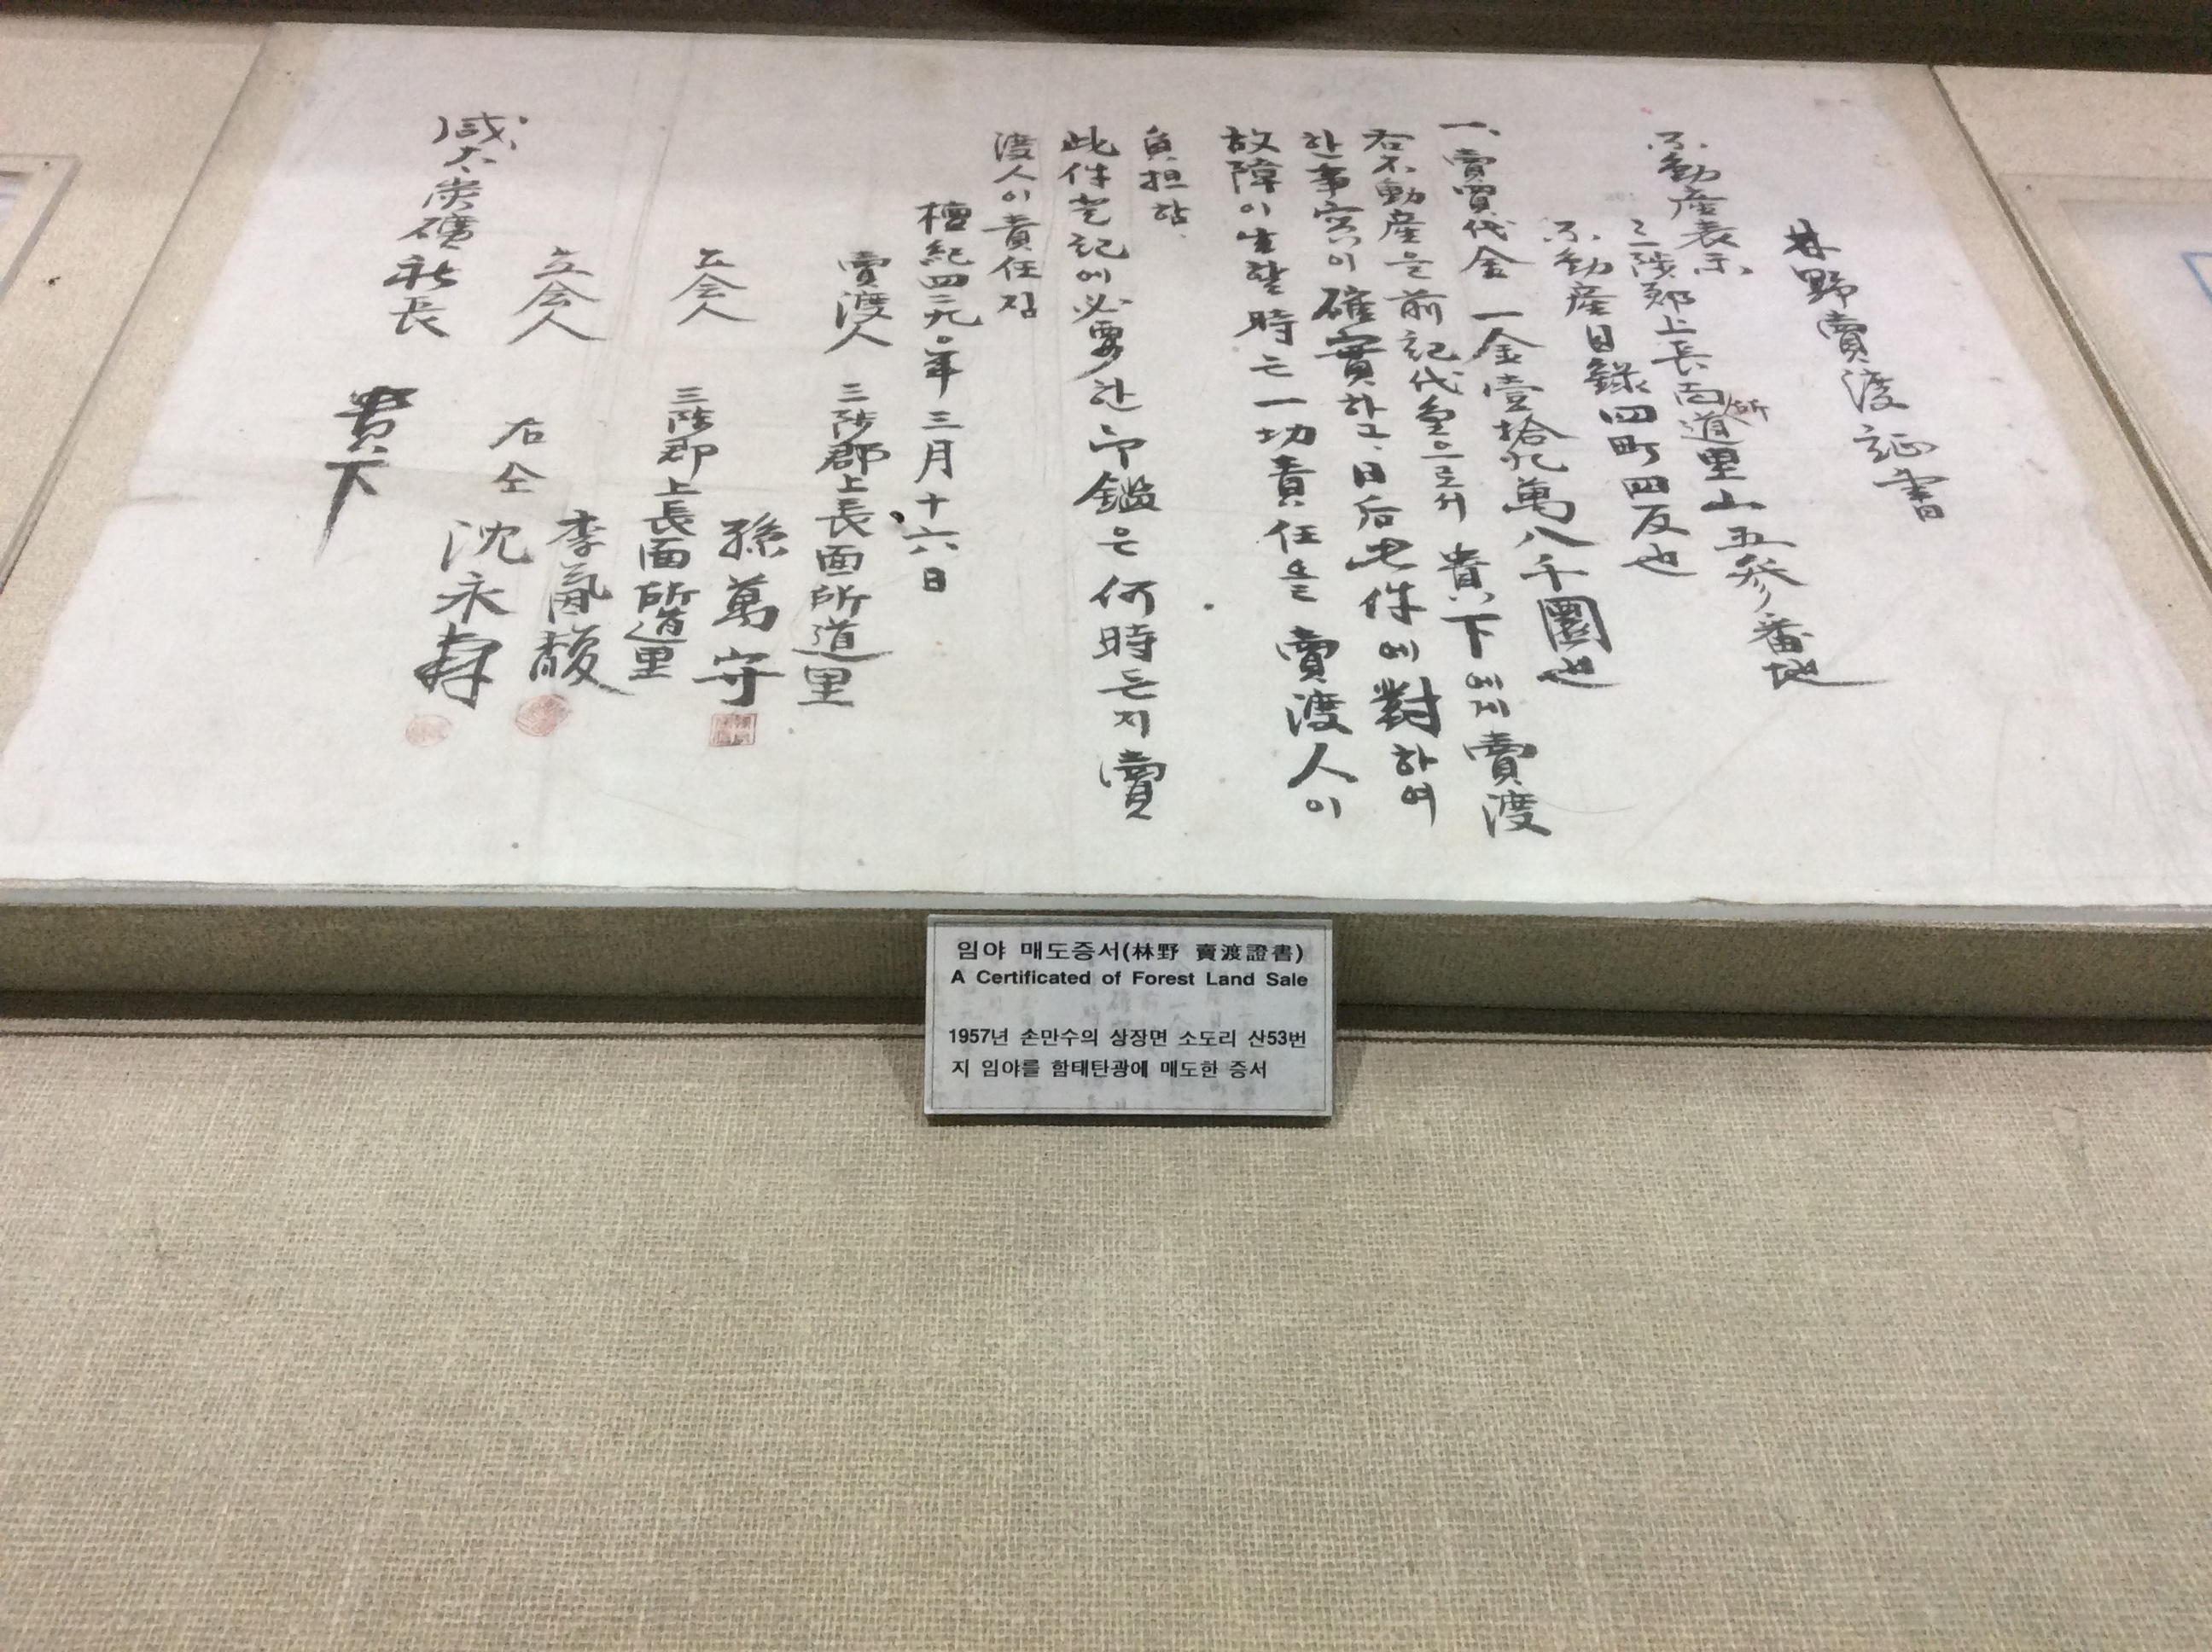 林野賣渡証書
不動産表示
三陟郡上長面所道里山五参番地
不動産目錄四町四反也
一、賣買代金 一金壹拾九萬八千圜也
右不動産을 前記代金으로서 貴下에게 賣渡
한事実이 確實하고、日后此件에 對하여
故障이 生할 時는 一切責任을 賣渡人이
負担함.
此件 登記에 必要한 印鑑은 何時든지 賣
渡人이 責任짐
檀紀四二九〇年三月十六日
賣渡人 三陟郡上長面所道里
孫萬守
立会人 三陟郡上長面所道里
李馥
立会人 右仝
沈永壽
咸太炭礦社長 貴下
임야 매도증서(林野 賣渡證書)
A Certificated of Forest Land Sale
1957년 손만수의 상장면 소도리 산53번
지 임야를 함태탄광에 매도한 증서